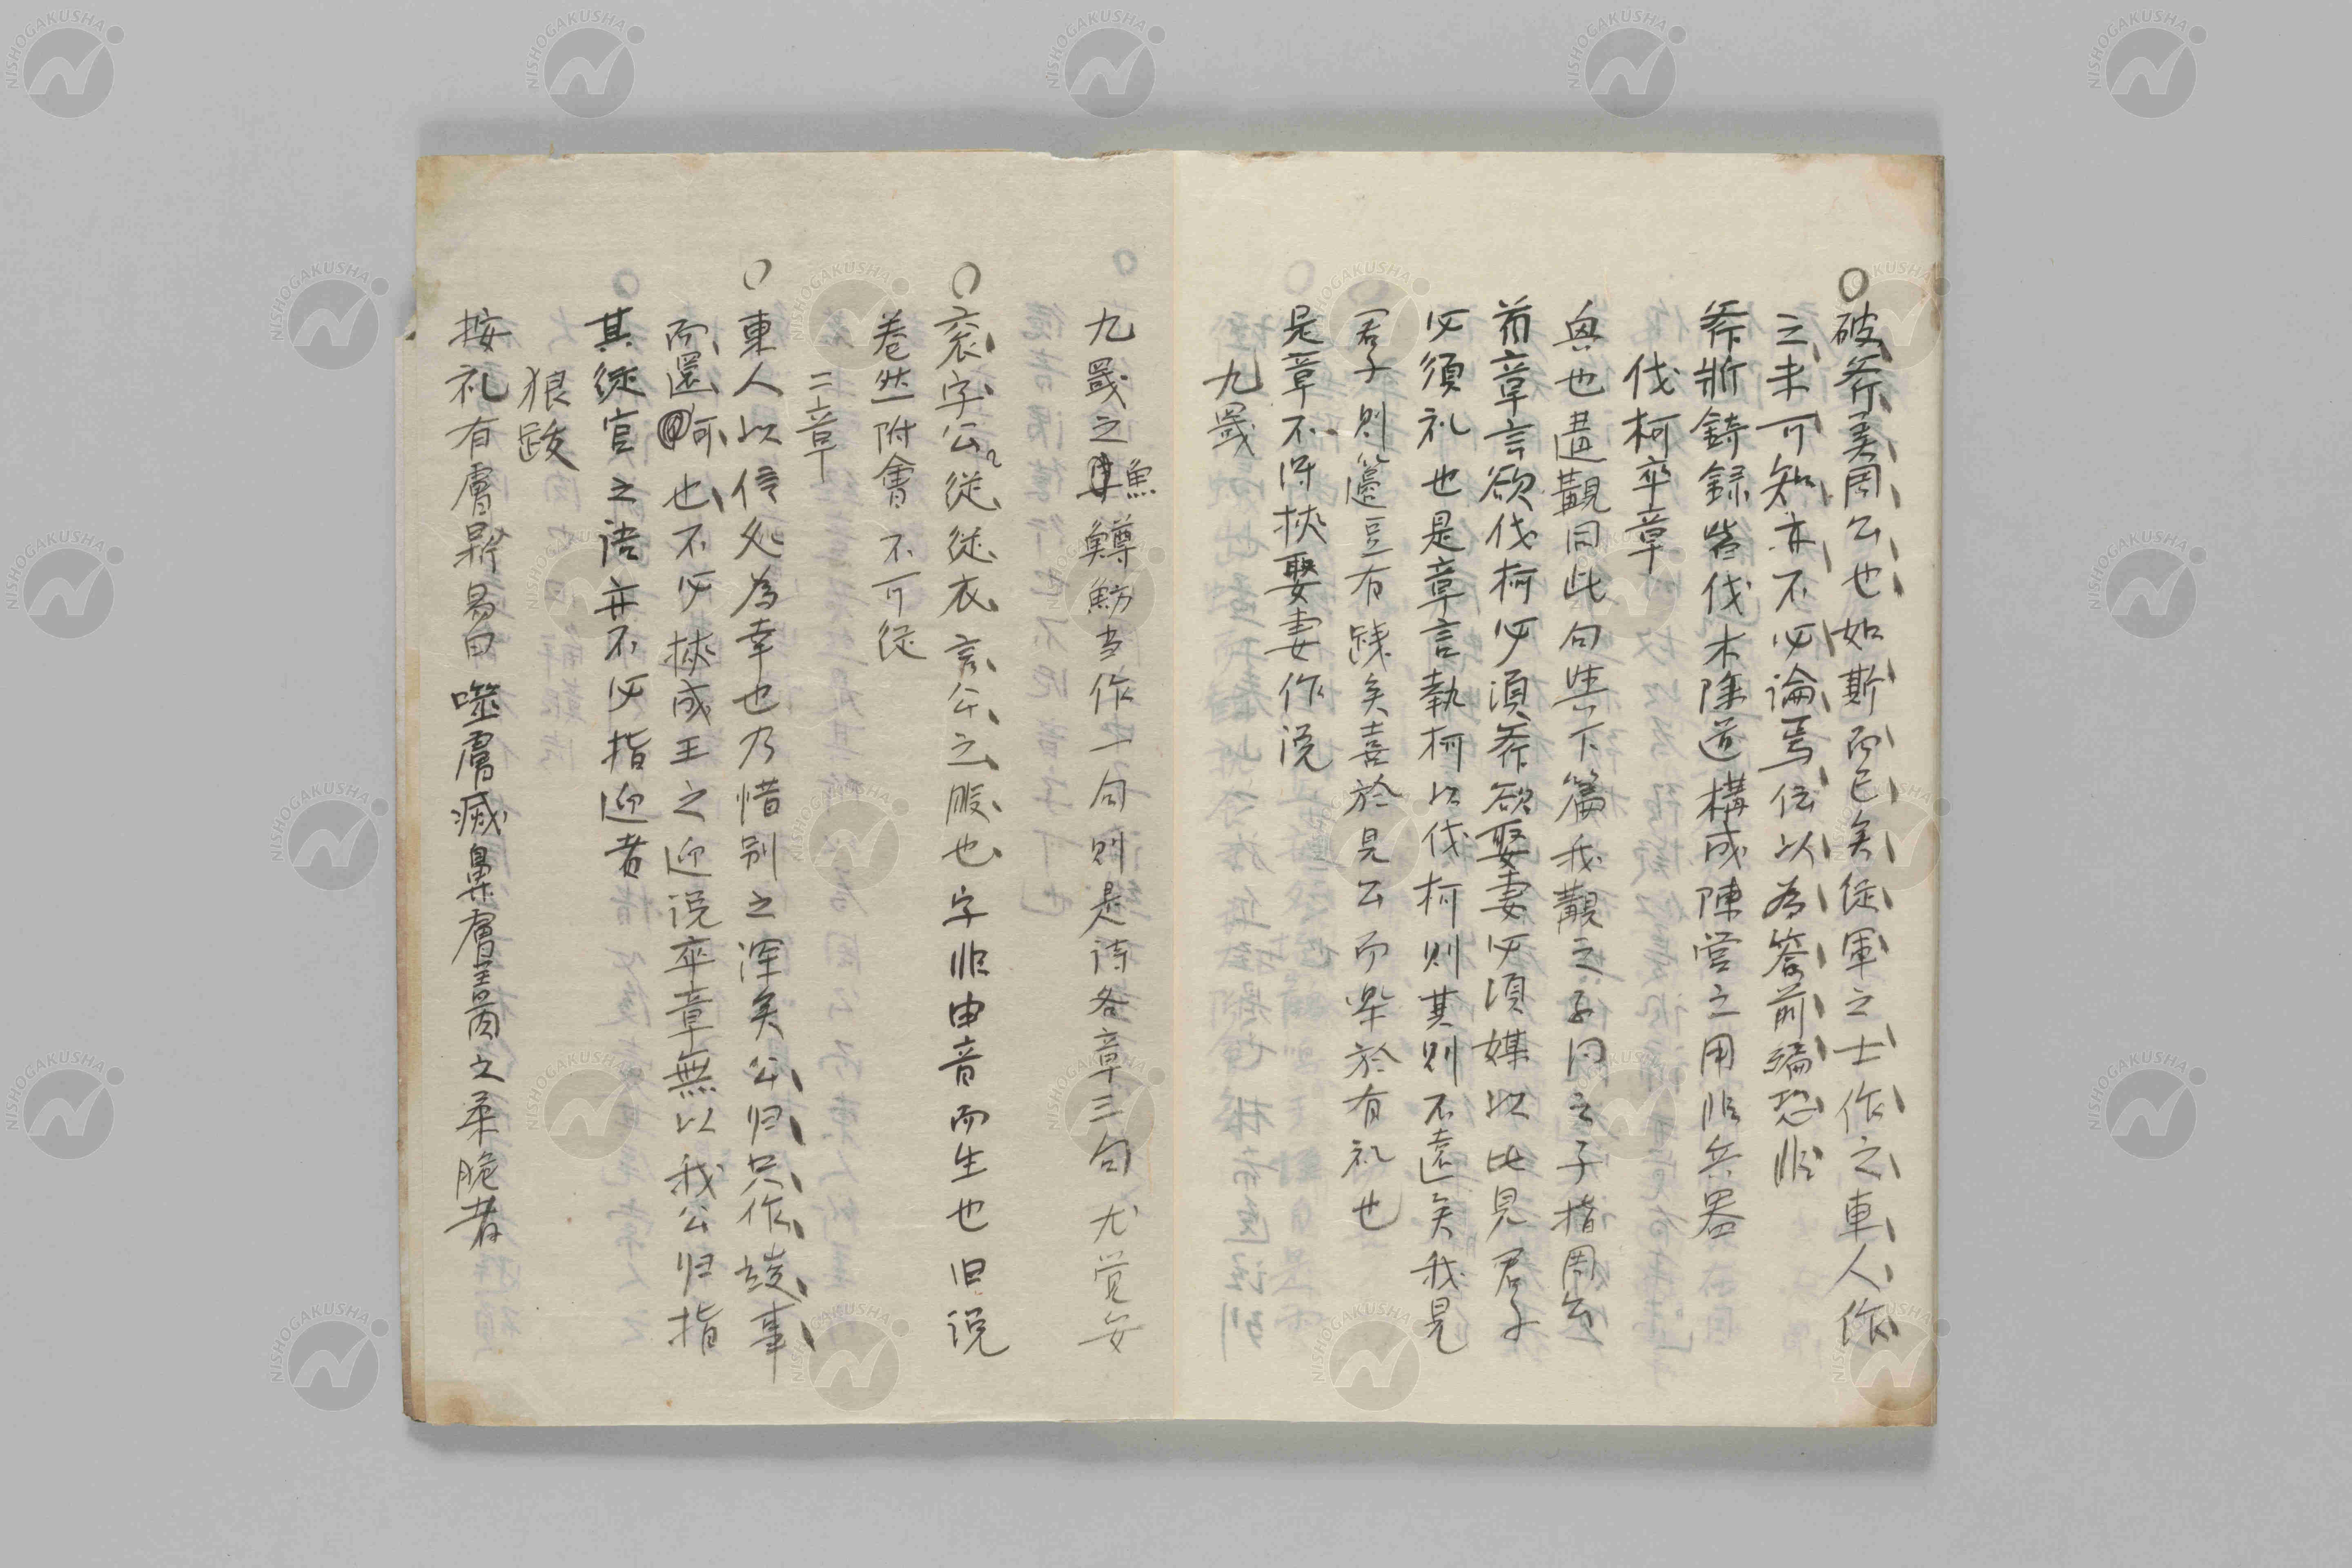 ○破斧美周公也如斯而已矣従軍之士作之東人作
之未可知亦不必論焉伝以為答前編恐非
斧斨錡銶皆伐木除道構成陣営之用非兵器
伐柯卒章
興也遘覯同此句與下篇我覯之子同之子指周公
首章言欲伐柯必須斧欲娶妻必須媒以比見君子
必須礼也是章言執柯以伐柯則其則不遠矣我見
君子則籩豆有践矣喜於見公而楽於有礼也
是章不得挾娶妻作説
九罭
九罭之魚鱒魴当作一句則是詩各章三句尤覚安
○衮字公従従衣言公之服也字非由音而生也旧説
巻然附會不可従
二章
○東人以信処為幸也乃惜別之渾矣公归只作竣事
而還何也不必挾成王之迎説卒章無以我公归指
其従官之語亦不必指迎者
狼跋
按礼有膚鼎易曰噬膚滅鼻膚盖肉之柔脆者
NISHOGAKUSHA